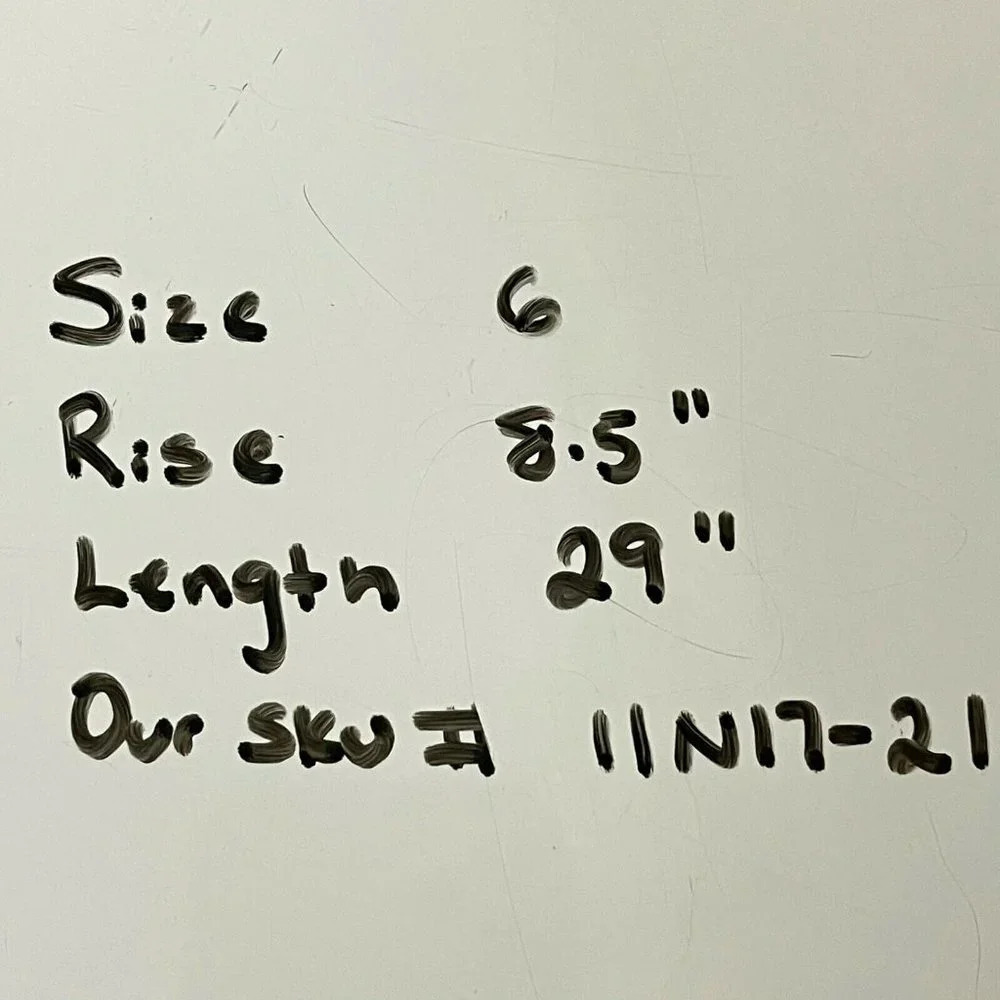 Size 6
Rise 8.5"
Length 29"
Our SKU # 11N17-21